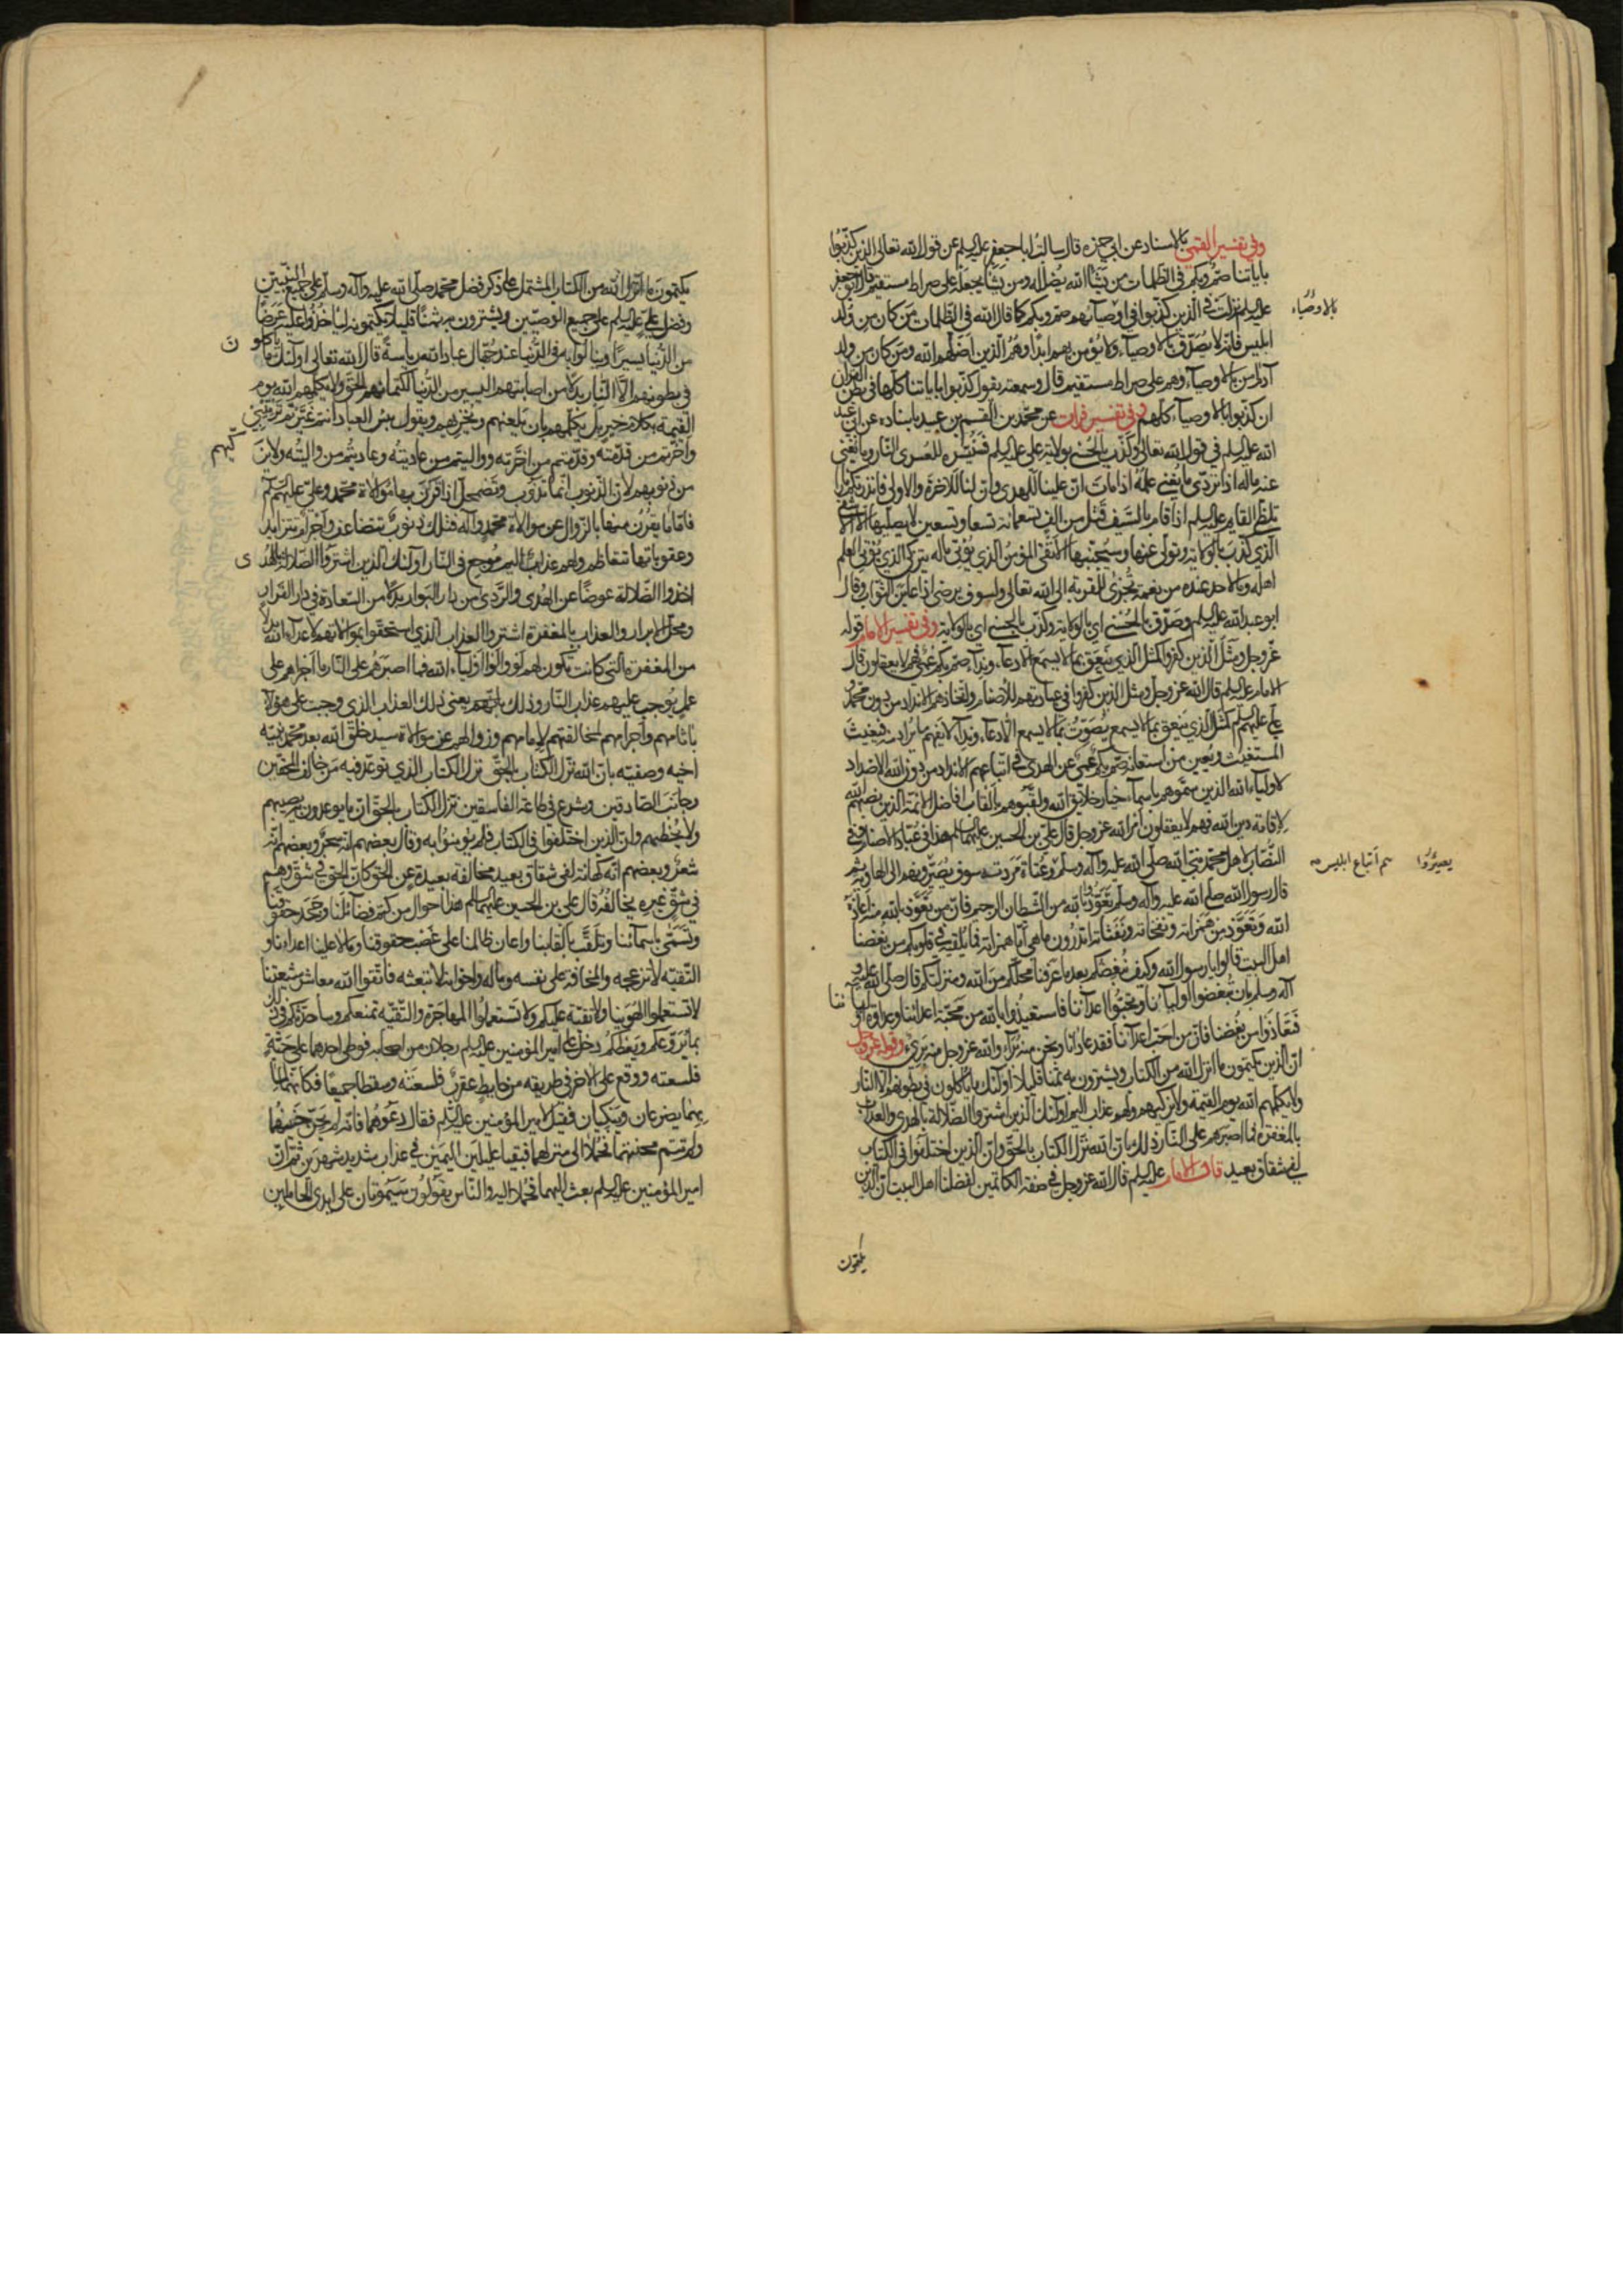 وفي تفسير القمي بالاسناد عن ابي حمزه قال سالت ابا جعفر عليه السلم عن قول الله تعالى الذين كذبوا
باياتنا صم وبكم في الظلمات من يشأ الله يضلله ومن يشأ يجعله على صراط مستقيم قال ابو جعفر
عليه السلم نزلت في الذين كذبوا في اوصيآئهم صم وبكم كما قال الله في الظلمات من كان من ولد
بالاوصياء
ابليس فانه لا يصدق بالاوصيآء ولا يؤمن بهم ابدا وهم الذين اضلهم الله ومن كان من ولد
آدم امن بالاوصيآء وهم على صراط مستقيم قال وسمعته يقول كذبوا باياتنا كلها في بطن القرآن
ان كذبوا بالاوصيآء كلهم وفي تفسير فرات عن محمد بن القسم بن عبيد باسناده عن ابي عبد
الله عليه السلم في قول الله تعالى وكذب بالحسنى بولاية علي عليه السلم فسنيسره للعسرى النار وما يغني
عنه ماله اذا تردى ما يغني علمه اذا مات ان علينا للهدى وان لنا للاخرة والاولى فانذرتكم نارا
تلظى القايم عليه السلم اذا قام بالسيف قتل من الف تسعمائة تسعا وتسعين لا يصليها الا الاشقى
الذي كذب بالولاية وتولى عنها وسيجنبها الاتقى المؤمن الذي يؤتي ماله يتزكى الذي يؤتي العلم
اهله وما لاحد عنده من نعمة تجزى للقربة الى الله تعالى ولسوف يرضى اذا عاين الثواب وقال
ابو عبد الله عليه السلم وصدق بالحسنى اي بالولاية وكذب بالحسنى اي بالولاية وفي تفسير الامام قوله
عز وجل ومثل الذين كفروا كمثل الذي ينعق بما لا يسمع الا دعآء وندآء صم بكم عمي فهم لا يعقلون قال
الامام عليه السلم قال الله عز وجل ومثل الذين كفروا في عبادتهم للاصنام واتخاذهم الانداد من دون محمد و
علي عليهم السلم كمثل الذي ينعق بما لا يسمع يصوت بما لا يسمع الا دعآء وندآء لا يفهم ما يراد منه فيغيث
المستغيث ويعين من استعانه صم بكم عمي عن الهدى في اتباعهم الانداد من دون الله الاضداد
لاوليآء الله الذين سموهم باسمآء خيار خلايق الله ولقبوهم بالقاب افاضل الائمة الذين نصبهم الله
لاقامة دين الله فهم لا يعقلون امر الله عز وجل قال علي بن الحسين عليهما السلم هذا في عباد الاصنام وفي
النصاب لاهل محمد نبي الله صلى الله عليه وآله وسلم وعتاة مردته سوف يصيرونهم الى الهاوية ثم
هم اتباع ابليس يصيروا
قال رسول الله صلى الله عليه وآله وسلم تعوذوا بالله من الشيطان الرجيم فان من تعوذ بالله منه اعاذه
الله وتعوذ من همزاته ونفخاته ونفثاته اتدرون ما هي اما همزاته فما يلقيه في قلوبكم من بغضنا
اهل البيت قالوا يا رسول الله وكيف نبغضكم بعد ما عرفنا محلكم من الله ومنزلتكم قال صلى الله عليه و
آله وسلم بان تبغضوا اوليآئنا وتحبوا اعدآئنا فاستعيذوا بالله من محبة اعدائنا وعداوة اوليائنا
فتعاذوا من بغضنا فان من احب اعدآئنا فقد عادانا ونحن منه برآء والله عز وجل منه بريء وقوله عز وجل
ان الذين يكتمون ما انزل الله من الكتاب ويشترون به ثمنا قليلا اولئك ما ياكلون في بطونهم الا النار
ولا يكلمهم الله يوم القيمة ولا يزكيهم ولهم عذاب اليم اولئك الذين اشتروا الضلالة بالهدى والعذاب
بالمغفرة فما اصبرهم على النار ذلك بان الله نزل الكتاب بالحق وان الذين اختلفوا في الكتاب
لفي شقاق بعيد قال الامام عليه السلم قال الله عز وجل في صفة الكاتمين لفضلنا اهل البيت ان الذين
يكتمون
يكتمون ما انزل الله من الكتاب المشتمل على ذكر فضل محمد صلى الله عليه وآله وسلم على جميع النبيين
وفضل علي عليه السلم على جميع الوصيين ويشترون به ثمنا قليلا يكتمونه لياخذوا عليه عرضا
من الدنيا يسيرا وينالوا به في الدنيا عند جهال عباد الله رياسة قال الله تعالى اولئك ما ياكلون
في بطونهم الا النار بدلا من اصابتهم اليسير من الدنيا لكتمانهم الحق ولا يكلمهم الله يوم
القيمة بكلام خير بل يكلمهم بان يلعنهم ويخزيهم ويقول بئس العباد انتم غيرتم ترتيبي
واخرتم من قدمته وقدمتم من اخرته وواليتم من عاديته وعاديتم من واليته ولا يزكيهم
من ذنوبهم لان الذنوب انما تذوب وتضمحل اذا قرن بها موالاة محمد وعلي عليهما السلم
فاما ما يقرن منها بالزوال عن موالاة محمد وآله فتلك ذنوب تتضاعف واجرام تتزايد
وعقوباتها تتعاظم ولهم عذاب اليم موجع في النار اولئك الذين اشتروا الضلالة بالهدى
اخذوا الضلالة عوضا عن الهدى والردى من دار البوار بدلا من السعادة في دار القرار
ومحل الابرار والعذاب بالمغفرة اشتروا العذاب الذي استحقوا بموالاتهم لاعدآء الله بدلا
من المغفرة التي كانت تكون لهم لو والوا اوليآء الله فما اصبرهم على النار ما اجراهم على
عمل يوجب عليهم عذاب النار ذلك بانهم يعني ذلك العذاب الذي وجب على هؤلاء
باثامهم واجرامهم لمخالفتهم لامامهم وزوالهم عن موالاة سيد خلق الله بعد محمد نبيه
اخيه وصفيه بان الله نزل الكتاب بالحق نزل الكتاب الذي توعد فيه من خالف المحقين
وجانب الصادقين وشرع في طاعة الفاسقين نزل الكتاب بالحق ان ما يوعدون يصيبهم
ولا يخطيهم وان الذين اختلفوا في الكتاب فلم يؤمنوا به وقال بعضهم انه سحر وبعضهم انه
شعر وبعضهم انه كهانة لفي شقاق بعيد مخالفة بعيدة عن الحق كان الحق في شق وهم
في شق غيره يخالفه قال علي بن الحسين عليهما السلم هذا احوال من كتم فضائلنا وجحد حقوقنا
وتسمى باسمآئنا وتلقب بالقابنا واعان ظالمنا على غصب حقوقنا ومالا علينا اعداءنا و
التقية لا تزعجه والمخافة على نفسه وماله واخوانه لا تبعثه فاتقوا الله معاشر شيعتنا
لا تستعملوا الهوينا ولا تقية عليكم ولا تستعملوا المهاجرة والتقية تمنعكم وساحدثكم في ذلك
بما يردعكم ويعظكم دخل على امير المؤمنين عليه السلم رجلان من اصحابه فوطى احدهما على حية
فلسعته ووقع على الاخر في طريقه من حايط عقرب فلسعته وسقطا جميعا فكانهما لما
بهما يضرعان ويبكيان فقيل لامير المؤمنين عليه السلم فقال دعوهما فانه لم يحن حينهما
ولم تتم محنتهما فحملا الى منزلهما فبقيا عليلين اليمين في عذاب شديد شهرين ثم ان
امير المؤمنين عليه السلم بعث اليهما فحملا اليه والناس يقولون سيموتان على ايدي الحاملين